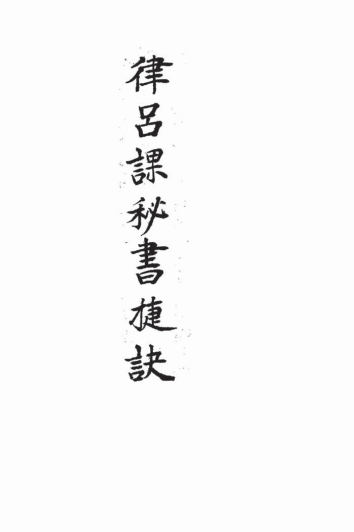 律呂課秘書捷訣